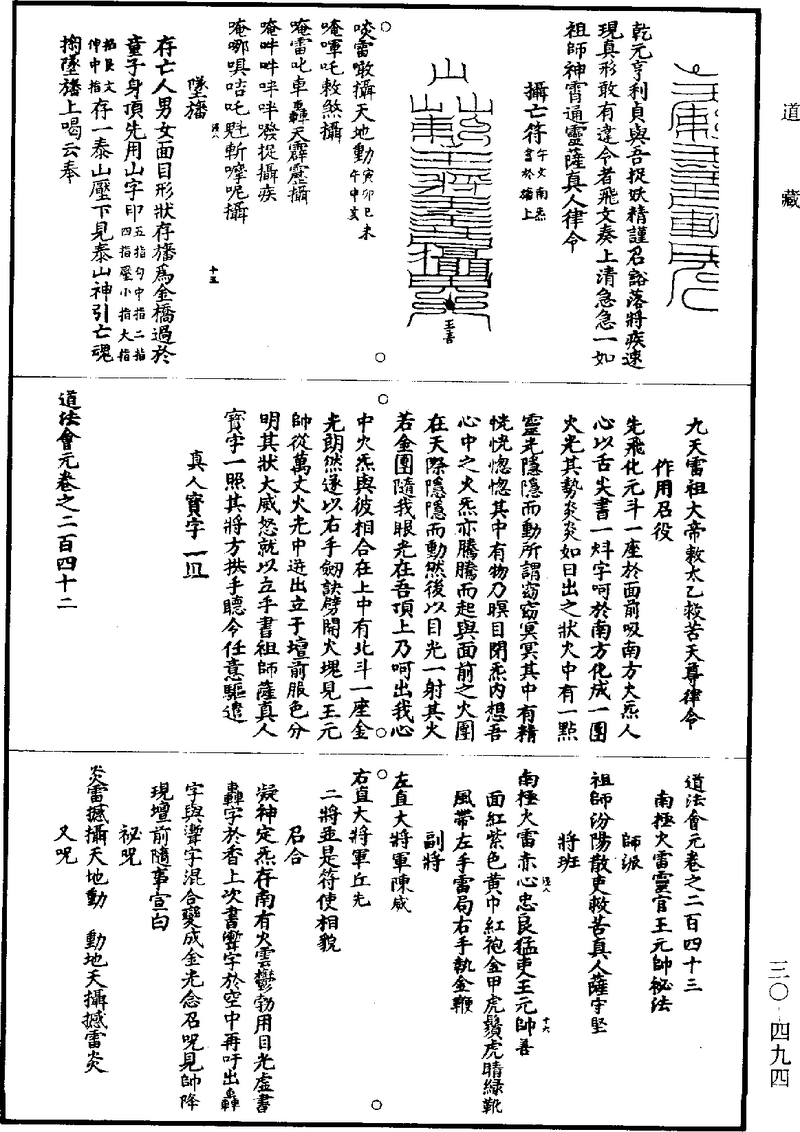 道藏
乾元亨利貞與吾捉妖精謹召豁落將疾速
現真形敢有違令者飛文奏上清急急一如
祖師神霄通靈薩真人律令
攝亡符午文南炁書於旛上
王善
啖雷㗋攝天地動寅卯巳未午申亥
唵㖇吒敕煞攝
唵雷叱車轟天霹靂攝
唵吽吽㖠㖠發捉攝疾
唵哪嗔咭吒
斬嚤呢攝
墜旛
存亡人男女面目形狀存旛為金橋過於
童子身頂先用山字印五指勾中指二指四指壓小指大指
伸中指存一泰山壓下見泰山神引亡魂
搊墜旛上喝云奉
九天雷祖大帝敕太乙救苦天尊律令
作用召役
先飛化元斗一座於面前吸南方火炁人
心以舌尖書一㶡字呵於南方化成一團
火光其勢炎炎如日出之狀火中有一點
靈光隱隱而動所謂窈窈冥冥其中有精
恍恍惚惚其中有物乃暝目閉炁內想吾
心中之火炁亦騰騰而起與面前之火團
在天際隱隱而動然後以目光一射其火
若金團隨我眼光在吾頂上乃呵出我心
中火炁與彼相合在上中有北斗一座金
光朗然遂以右手劒訣劈開火塊見王元
帥從萬丈火光中迸出立于壇前服色分
明其狀大威怒就以立手書祖師薩真人
寶字一照其將方拱手聽令任意驅遣
真人寶字
道法會元卷之二百四十二
道法會元卷之二百四十三
南極火雷靈官王元帥祕法
師派
祖師汾陽散吏救苦真人薩守堅
將班
南極火雷赤心忠良猛吏王元帥善
面紅紫色黃巾紅袍金甲虎鬚虎睛綠靴
風帶左手雷局右手執金鞭
副將
左直大將軍陳威
右直大將軍丘先
二將並是符使相貌
召合
凝神定炁存南有火雲鬱勃用目光虛書
轟字於香上次書䨻字於空中再吁出轟
字與䨻字混合變成金光念召呪見帥降
現壇前隨事宣白
祕呪
炎雷撼攝天地動　動地天攝撼雷炎
又呪
三〇-四九四